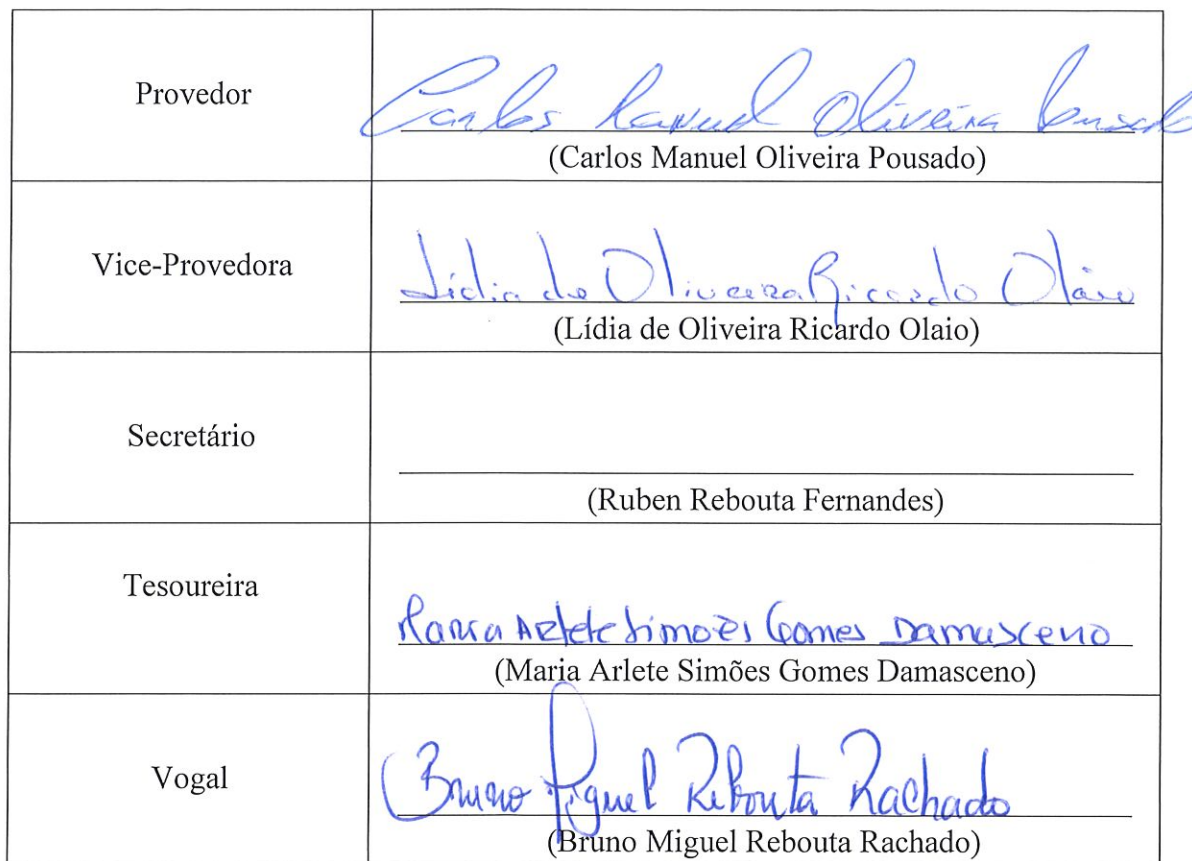 Provedor
Carlos Manuel Oliveira Pousado
(Carlos Manuel Oliveira Pousado)
Vice-Provedora
Lídia de Oliveira Ricardo Olaio
(Lídia de Oliveira Ricardo Olaio)
Secretário
(Ruben Rebouta Fernandes)
Tesoureira
Maria Arlete Simões Gomes Damasceno
(Maria Arlete Simões Gomes Damasceno)
Vogal
Bruno Miguel Rebouta Rachado
(Bruno Miguel Rebouta Rachado)